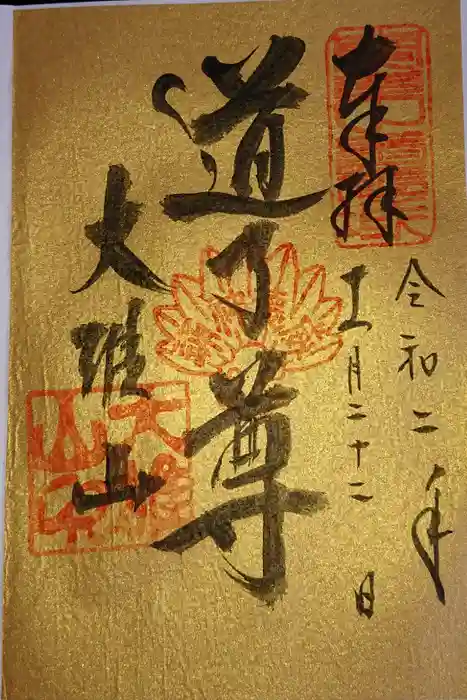 奉拝
令和二年
十一月二十二日
道了尊
大雄山